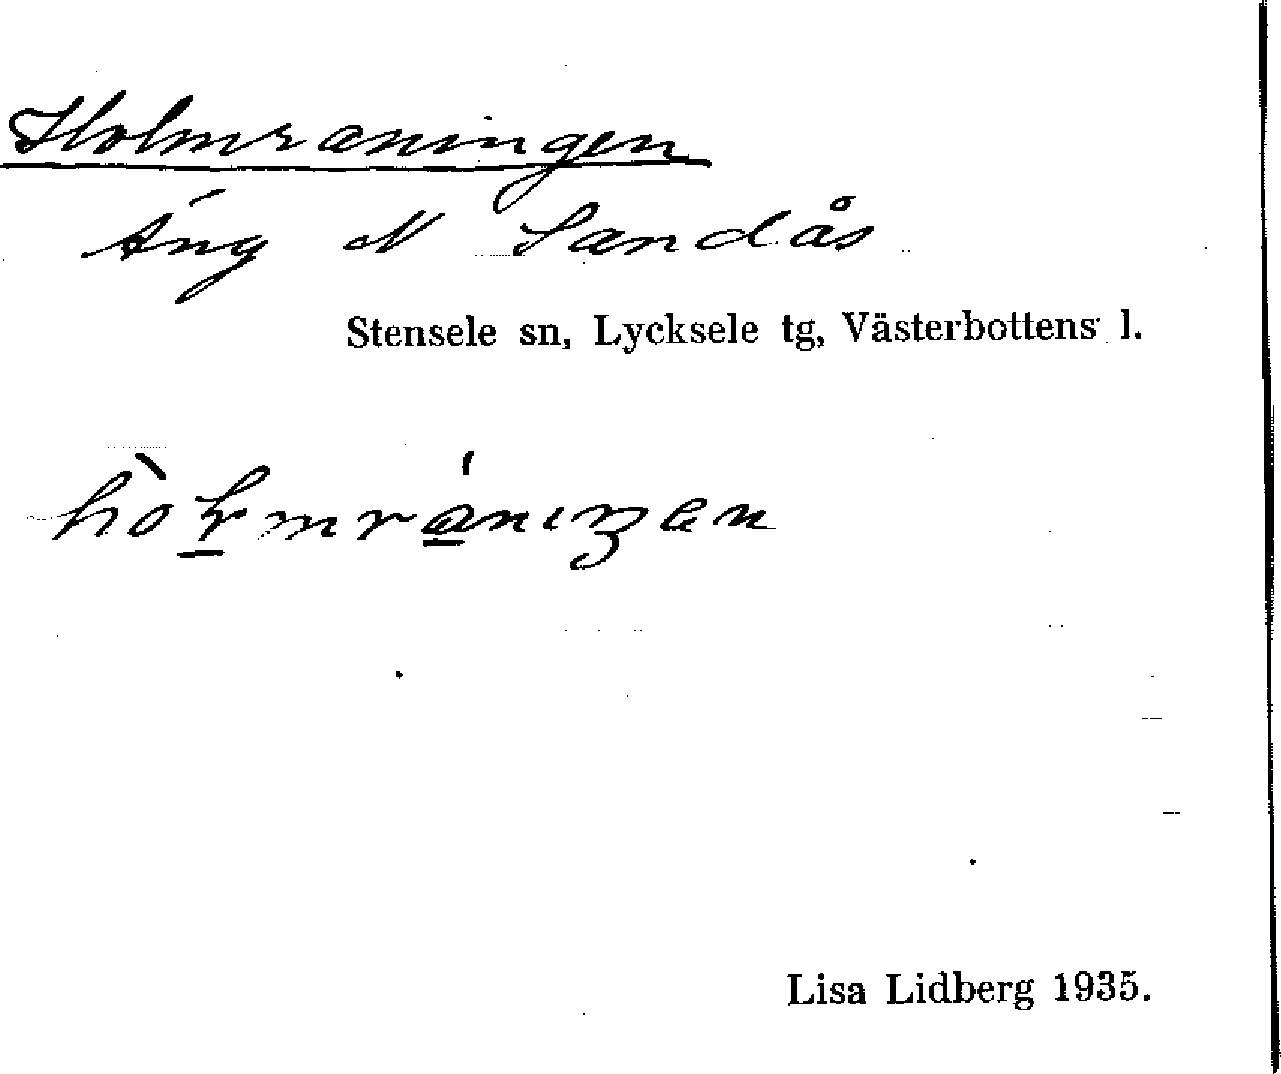 Holmraningen
Äng N Sandås
Stensele sn, Lycksele tg, Västerbottens l.
Lisa Lidberg 1935.